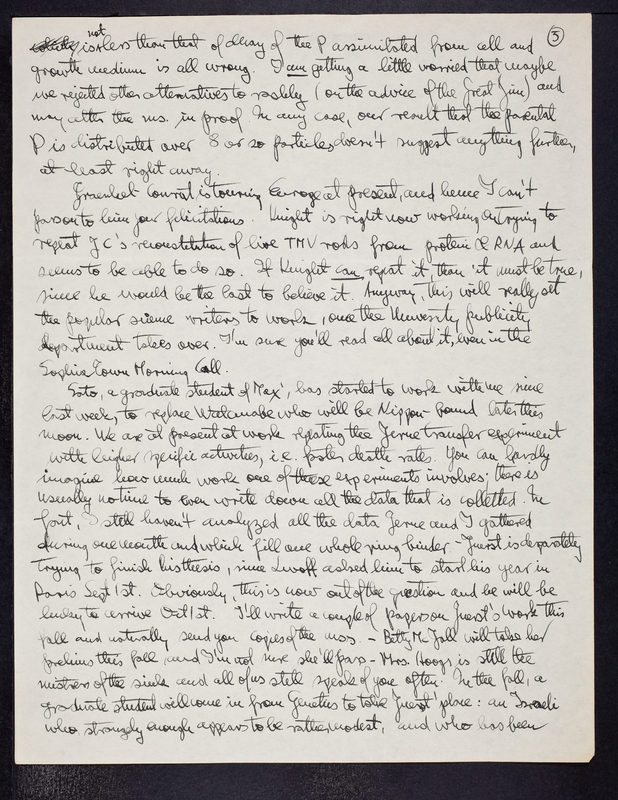 ③
not
is less than that of decay of the P assimilated from cell and
growth medium is all wrong. I am getting a little worried that maybe
we rejected other alternatives to rashly (on the advice of the Great Jim) and
may alter the ms. in proof. In any case, our result that the parental
P is distributed over 8 or so particles doesn't suggest anything further,
at least right away.
Fraenkel Conrat is touring Europe at present, and hence I can't
pass on to him your felicitations. Knight is right now working on trying to
repeat FC's reconstitution of live TMV rods from protein & RNA and
seems to be able to do so. If Knight can repeat it, than it must be true,
since he would be the last to believe it. Anyway, this will really set
the popular science writers to work, once the University publicity
department takes over. I'm sure you'll read all about it, even in the
Sophiatown Morning Call.
Sato, a graduate student of Max', has started to work with me since
last week, to replace Watanabe who will be Nippon-bound later this
moon. We are at present at work repeating the Jerne transfer experiment
with higher specific activities, i.e. faster death rates. You can hardly
imagine how much work one of these experiments involves; there is
usually no time to even write down all the data that is collected. In
fact, I still haven't analyzed all the data Jerne and I gathered
during one month and which fill one whole ring binder - Fuerst is desparately
trying to finish his thesis, since Lwoff asked him to start his year in
Paris Sept 1st. Obviously, this is now out of the question and he will be
lucky to arrive Oct 1st. I'll write a couple of papers on Fuerst's work this
fall and naturally send you copies of the mss. - Betty McFall will take her
prelims this fall and I'm not sure she'll pass - Mrs. Hoogs is still the
mistress of the sink and all of us still speak of you often. In the fall, a
graduate student will come in from Genetics to take Fuerst' place: an Israeli
who strangely enough appears to be rather modest, and who has been